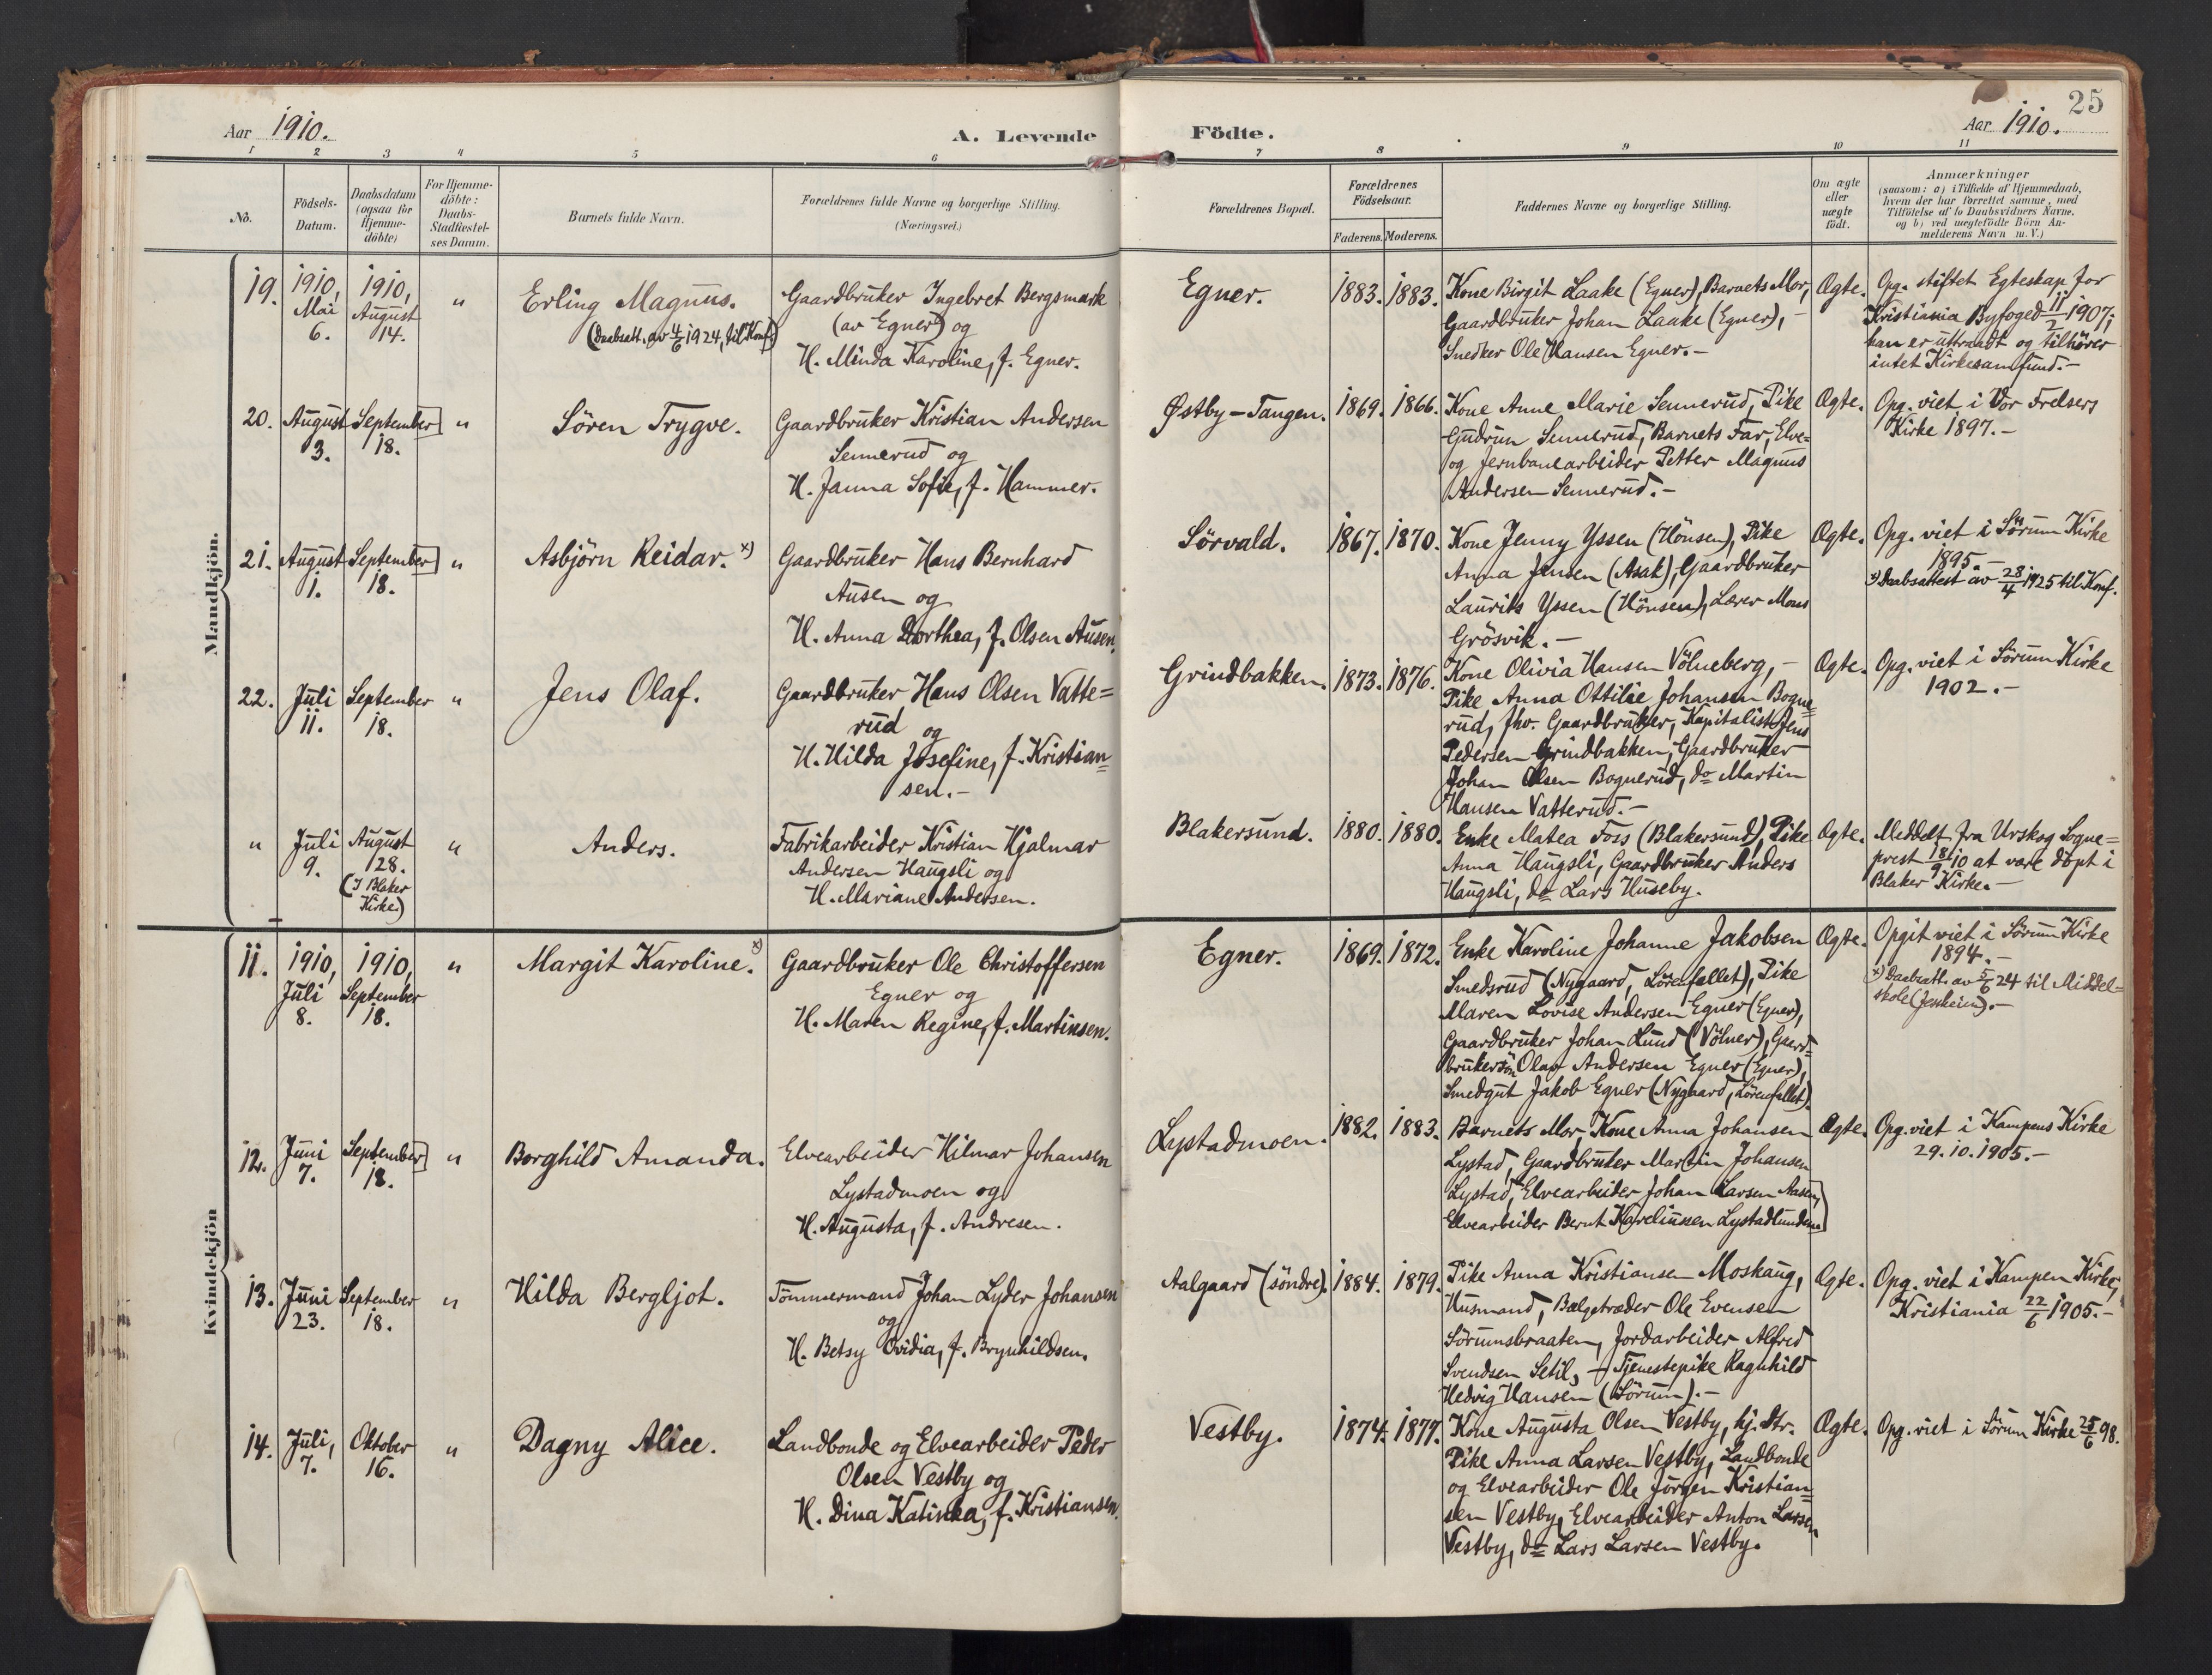 25
Aar 1910.
A. Levende Födte.
Aar 1910.
1 2 3 4 5 6 7 8 9 10 11
No.
Födsels-
Datum.
Daabsdatum
(ogsaa for
Hjemme-
döbte)
For Hjemme-
döbte:
Daabs-
Stadfæstel-
ses Datum.
Barnets fulde Navn.
Forældrenes fulde Navne og borgerlige Stilling.
(Næringsvei.)
Forældrenes Bopæl.
Forældrenes
Födselsaar.
Faderens. Moderens.
Faddernes Navne og borgerlige Stilling.
Om ægte
eller
uægte
födt.
Anmærkninger
(saasom: a) i Tilfælde af Hjemmedaab,
hvem der har forrettet samme, med
Tilföielse af to Daabsvidners Navne.
og b) ved uegtefödte Börn An-
melderens Navn m. V.)
Mandkjön.
19.
1910,
Mai
6.
1910,
August
14.
"
Erling Magnus.
(Daabsatt. av 4/6 1924, til Konf.)
Gaardbruker Ingebret Bergsmark
(av Egner) og
H. Minda Karoline, f. Egner.
Egner.
1883. 1883.
Kone Birgit Laake (Egner), Barnets Mor,
Gaardbruker Johan Laake (Egner), -
Snedker Ole Hansen Egner. -
Ægte.
Opg. stiftet Egteskap for
Kristiania Byfoged 11/2 1907;
han er uttraadt og tilhører
intet Kirkesamfund. -
20.
August
3.
September
18.
"
Sören Trygve.
Gaardbruker Kristian Andersen
Sennerud og
H. Janna Sofie, f. Hammer.
Østby - Tangen.
1869. 1866.
Kone Anne Marie Sennerud, Pike
Gudrun Sennerud, Barnets Far, Elve=
og Jernbanearbeider Petter Magnus
Andersen Sennerud. -
Ægte.
Opg. viet i Vor Frelsers
Kirke 1897. -
21.
August
1.
September
18.
"
Asbjörn Reidar. x)
Gaardbruker Hans Bernhard
Ausen og
H. Anna Dorthea, f. Olsen Ausen.
Sörvald.
1867. 1870.
Kone Jenny Yssen (Hönsen), Pike
Anna Jensen (Asak), Gaardbruker
Laurits Yssen (Hönsen), Lærer Mons
Grösvik. -
Ægte.
Opg. viet i Sörum Kirke
1895. -
x) Daabsattest av 28/4 1925 til Konf.
22.
Juli
11.
September
18.
"
Jens Olaf.
Gaardbruker Hans Olsen Vatte=
rud og
H. Hilda Josefine, f. Kristian=
sen. -
Grindbakken.
1873. 1876.
Kone Olivia Hansen Völneberg, -
Pike Anna Ottilie Johansen Bogne=
rud, fhv. Gaardbruker, Kapitalist Jens
Pedersen Grindbakken, Gaardbruker
Johan Olsen Bognerud, do Martin
Hansen Vatterud. -
Ægte.
Opg. viet i Sörum Kirke
1902. -
"
Juli
9.
August
28.
(I Blaker
Kirke.)
"
Anders.
Fabrikarbeider Kristian Hjalmar
Andersen Haugsli og
H. Mariane Andersen.
Blakersund.
1880. 1880.
Enke Matea Foss (Blakersund), Pike
Anna Haugsli, Gaardbruker Anders
Haugsli, do Lars Huseby.
Ægte.
Meddelt fra Urskog Sogne=
prest 18/9 10 at være döpt i
Blaker Kirke. -
Kvindekjön
11.
1910,
Juli
8.
1910,
September
18.
"
Margit Karoline. x)
Gaardbruker Ole Christoffersen
Egner og
H. Maren Regine, f. Martinsen.
Egner.
1869. 1872.
Enke Karoline Johanne Jakobsen
Smedsrud (Nygaard, Lörenfallet), Pike
Maren Lovise Andersen Egner (Egner),
Gaardbruker Johan Lund (Völner), Gaard=
brukersön Olaf Andersen Egner (Egner),
Smedgut Jakob Egner (Nygaard, Lörenfallet).
Ægte.
Opgit viet i Sörum Kirke
1894. -
x) Daabsatt. av 5/6 24 til Middel=
skole (Jessheim). -
12.
Juni
7.
September
18.
"
Borghild Amanda.
Elvearbeider Hilmar Johansen
Lystadmoen og
H. Augusta, f. Andresen.
Lystadmoen.
1882. 1883.
Barnets Mor, Kone Anna Johansen
Lystad, Gaardbruker Martin Johansen
Lystad, Elvearbeider Johan Larsen Aasen,
Elvearbeider Bernt Karelinssen
Ægte.
Opg. viet i Kampens Kirke
29.10.1905. -
13.
Juni
23.
September
18.
"
Hilda Bergljot.
Tömmermand Johan Lyder Johansen
og
H. Betsy Ovidia, f. Brynhildsen.
Aalgaard (söndre).
1884. 1879.
Pike Anna Kristiansen Moskaug,
Husmand, Bælgetræder Ole Evensen
Sörumsbraaten, Jordarbeider Alfred
Svendsen Setil, - Tjenestepike Ragnhild
Hedvig Hansen (Sörum). -
Ægte.
Opg. viet i Kampen Kirke,
Kristiania 22/6 1905. -
14.
Juli,
7.
Oktober
16.
"
Dagny Alice.
Landbonde og Elvearbeider Peder
Olsen Vestby og
H. Dina Katinka, f. Kristiansen.
Vestby.
1874. 1877.
Kone Augusta Olsen Vestby, hj. Str.
Pike Anna Larsen Vestby, Landbonde
og Elvearbeider Ole Jörgen Kristian=
sen Vestby, Elvearbeider Anton Larsen
Vestby, do Lars Larsen Vestby.
Ægte.
Opg. viet i Sörum Kirke 25/6 98.